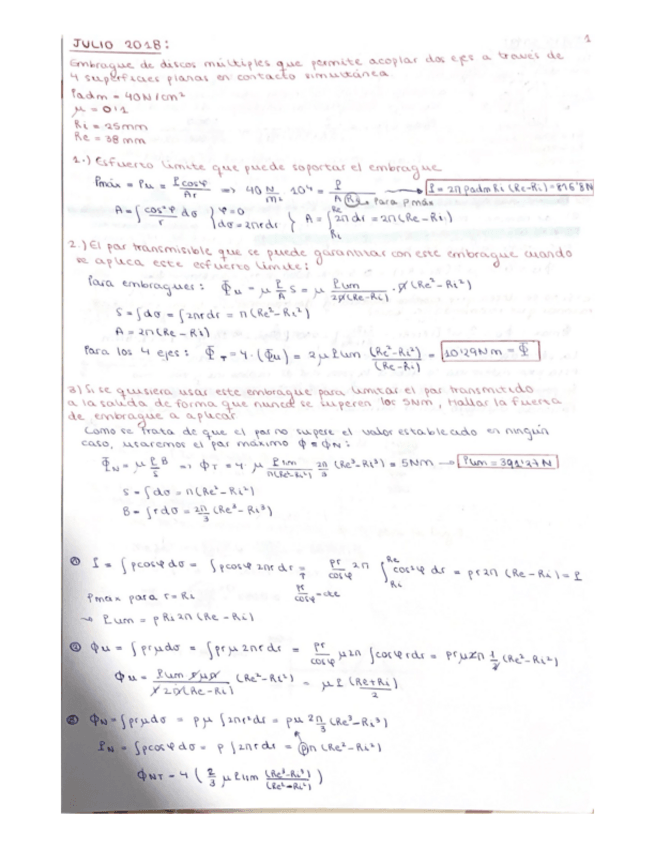 JULIO 2018:
1
Embrague de discos múltiples que permite acoplar dos ejes a través de
4 superficies planas en contacto simultánea.
Padm = 40 N/cm²
μ = 0'1
Ri = 25mm
Re = 38mm
1.) Esfuerzo límite que puede soportar el embrague
Pmáx = Pu = P cosφ / Ar ⇒ 40 N/m² 10⁴ = P / A Ri → P = 2π Padm Ri (Re-Ri) = 816'8N
Para Pmáx
A = ∫ cos²φ / r dσ } φ=0 dσ = 2πrdr } A = ∫ Ri Re 2π dr = 2π(Re-Ri)
2.) El par transmisible que se puede garantizar con este embrague cuando
se aplica este esfuerzo límite:
Para embragues: Φu = μ P/A S = μ Plim / 2π(Re-Ri) · π(Re²-Ri²)
S = ∫dσ = ∫2πrdr = π(Re²-Ri²)
A = 2π(Re-Ri)
Para los 4 ejes: ΦT = 4·(Φu) = 2μ Plim (Re²-Ri²) / (Re-Ri) = 10'29Nm = Φ
3) Si se quisiera usar este embrague para limitar el par transmitido
a la salida de forma que nunca se superen los 5Nm, Hallar la fuerza
de embrague a aplicar
Como se trata de que el par no supere el valor establecido en ningún
caso, usaremos el par máximo Φ = ΦN:
ΦN = μ P B / S ⇒ ΦT = 4· μ Plim / π(Re²-Ri²) 2π/3 (Re³-Ri³) = 5Nm → Plim = 391'27N
S = ∫dσ = π(Re²-Ri²)
B = ∫rdσ = 2π/3 (Re³-Ri³)
① P = ∫pcosφdσ = ∫pcosφ 2πrdr = pr/cosφ 2π ∫ Ri Re cos²φ dr = pr2π (Re-Ri) = P
Pmax para r=Ri
pr/cosφ = cte
→ Plim = pRi2π(Re-Ri)
② Φu = ∫prμdσ = ∫prμ 2πrdr = pr/cosφ μ2π ∫cosφrdr = prμ2π 1/2 (Re²-Ri²)
Φu = Plim μπ / 2π(Re-Ri) (Re²-Ri²) = μP (Re+Ri)/2
③ ΦN = ∫prμdσ = pμ ∫2πr²dr = pμ 2π/3 (Re³-Ri³)
PN = ∫pcosφdσ = p ∫2πrdr = pπ(Re²-Ri²)
ΦNT = 4 ( 2/3 μPlim (Re³-Ri³) / (Re²-Ri²) )